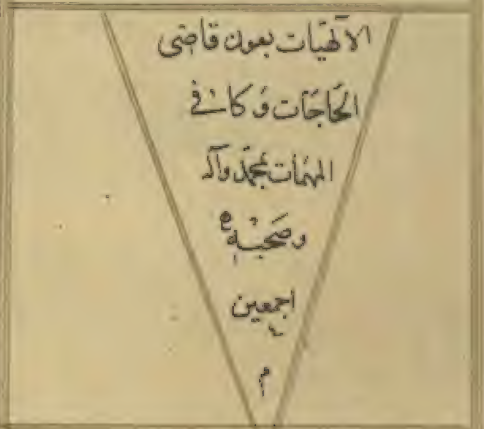 الالهيّات بعون قاضى
الحَاجَات وَكافى
المهمّات بمحمّد وآله
وصَحبه
اجمعين
م